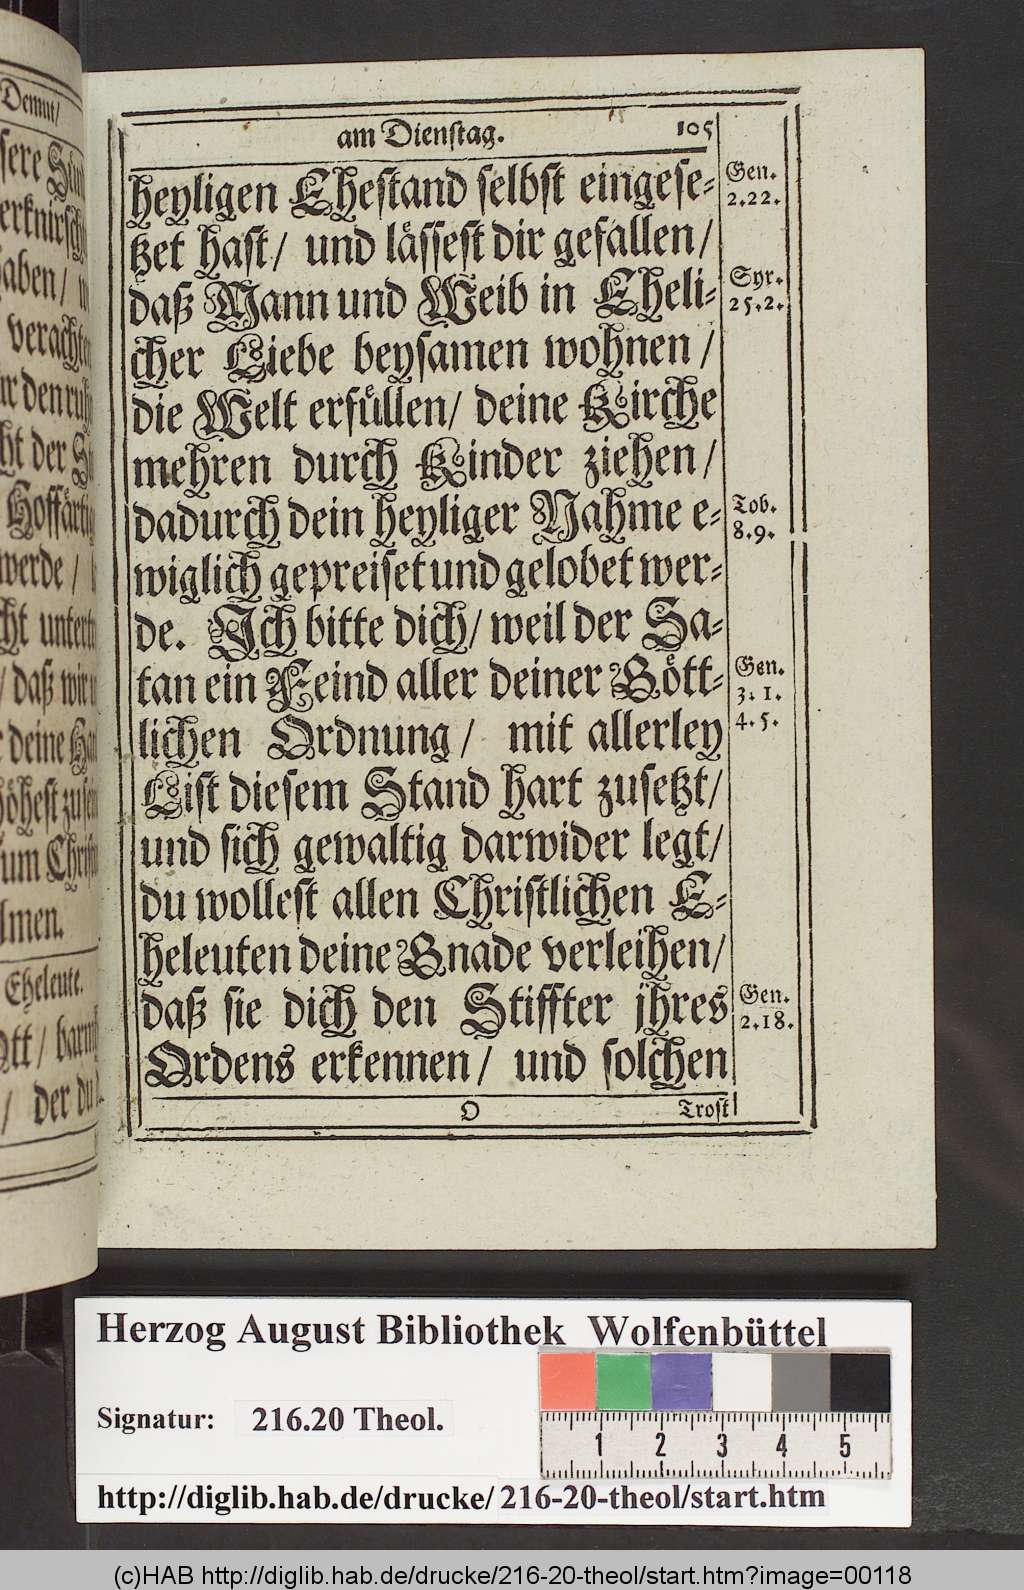 Demut/
am Dienſtag. 105
heyligen Eheſtand ſelbſt eingeſe⸗
tzet haſt/ und läſſeſt dir gefallen/
daß Mann und Weib in Eheli⸗
cher Liebe beyſamen wohnen/
die Welt erfüllen/ deine Kirche
mehren durch Kinder ziehen/
dadurch dein heyliger Nahme e⸗
wiglich gepreiſet und gelobet wer⸗
de. Ich bitte dich/ weil der Sa⸗
tan ein Feind aller deiner Gött⸗
lichen Ordnung/ mit allerley
Liſt dieſem Stand hart zuſetzt/
und ſich gewaltig darwider legt/
du wolleſt allen Chriſtlichen E⸗
heleuten deine Gnade verleihen/
daß ſie dich den Stiffter jhres
Ordens erkennen/ und ſolchen
O Troſt
Gen.
2.22.
Syr.
25.2.
Tob.
8.9.
Gen.
3.1.
4.5.
Gen.
2.18.
aben/
verachte
den
der
Hoffärtig
werde/
daß wir
deine
zum
Eheleute.
der du
Herzog August Bibliothek Wolfenbüttel
Signatur: 216.20 Theol.
1 2 3 4 5
http://diglib.hab.de/drucke/216-20-theol/start.htm
(c)HAB http://diglib.hab.de/drucke/216-20-theol/start.htm?image=00118